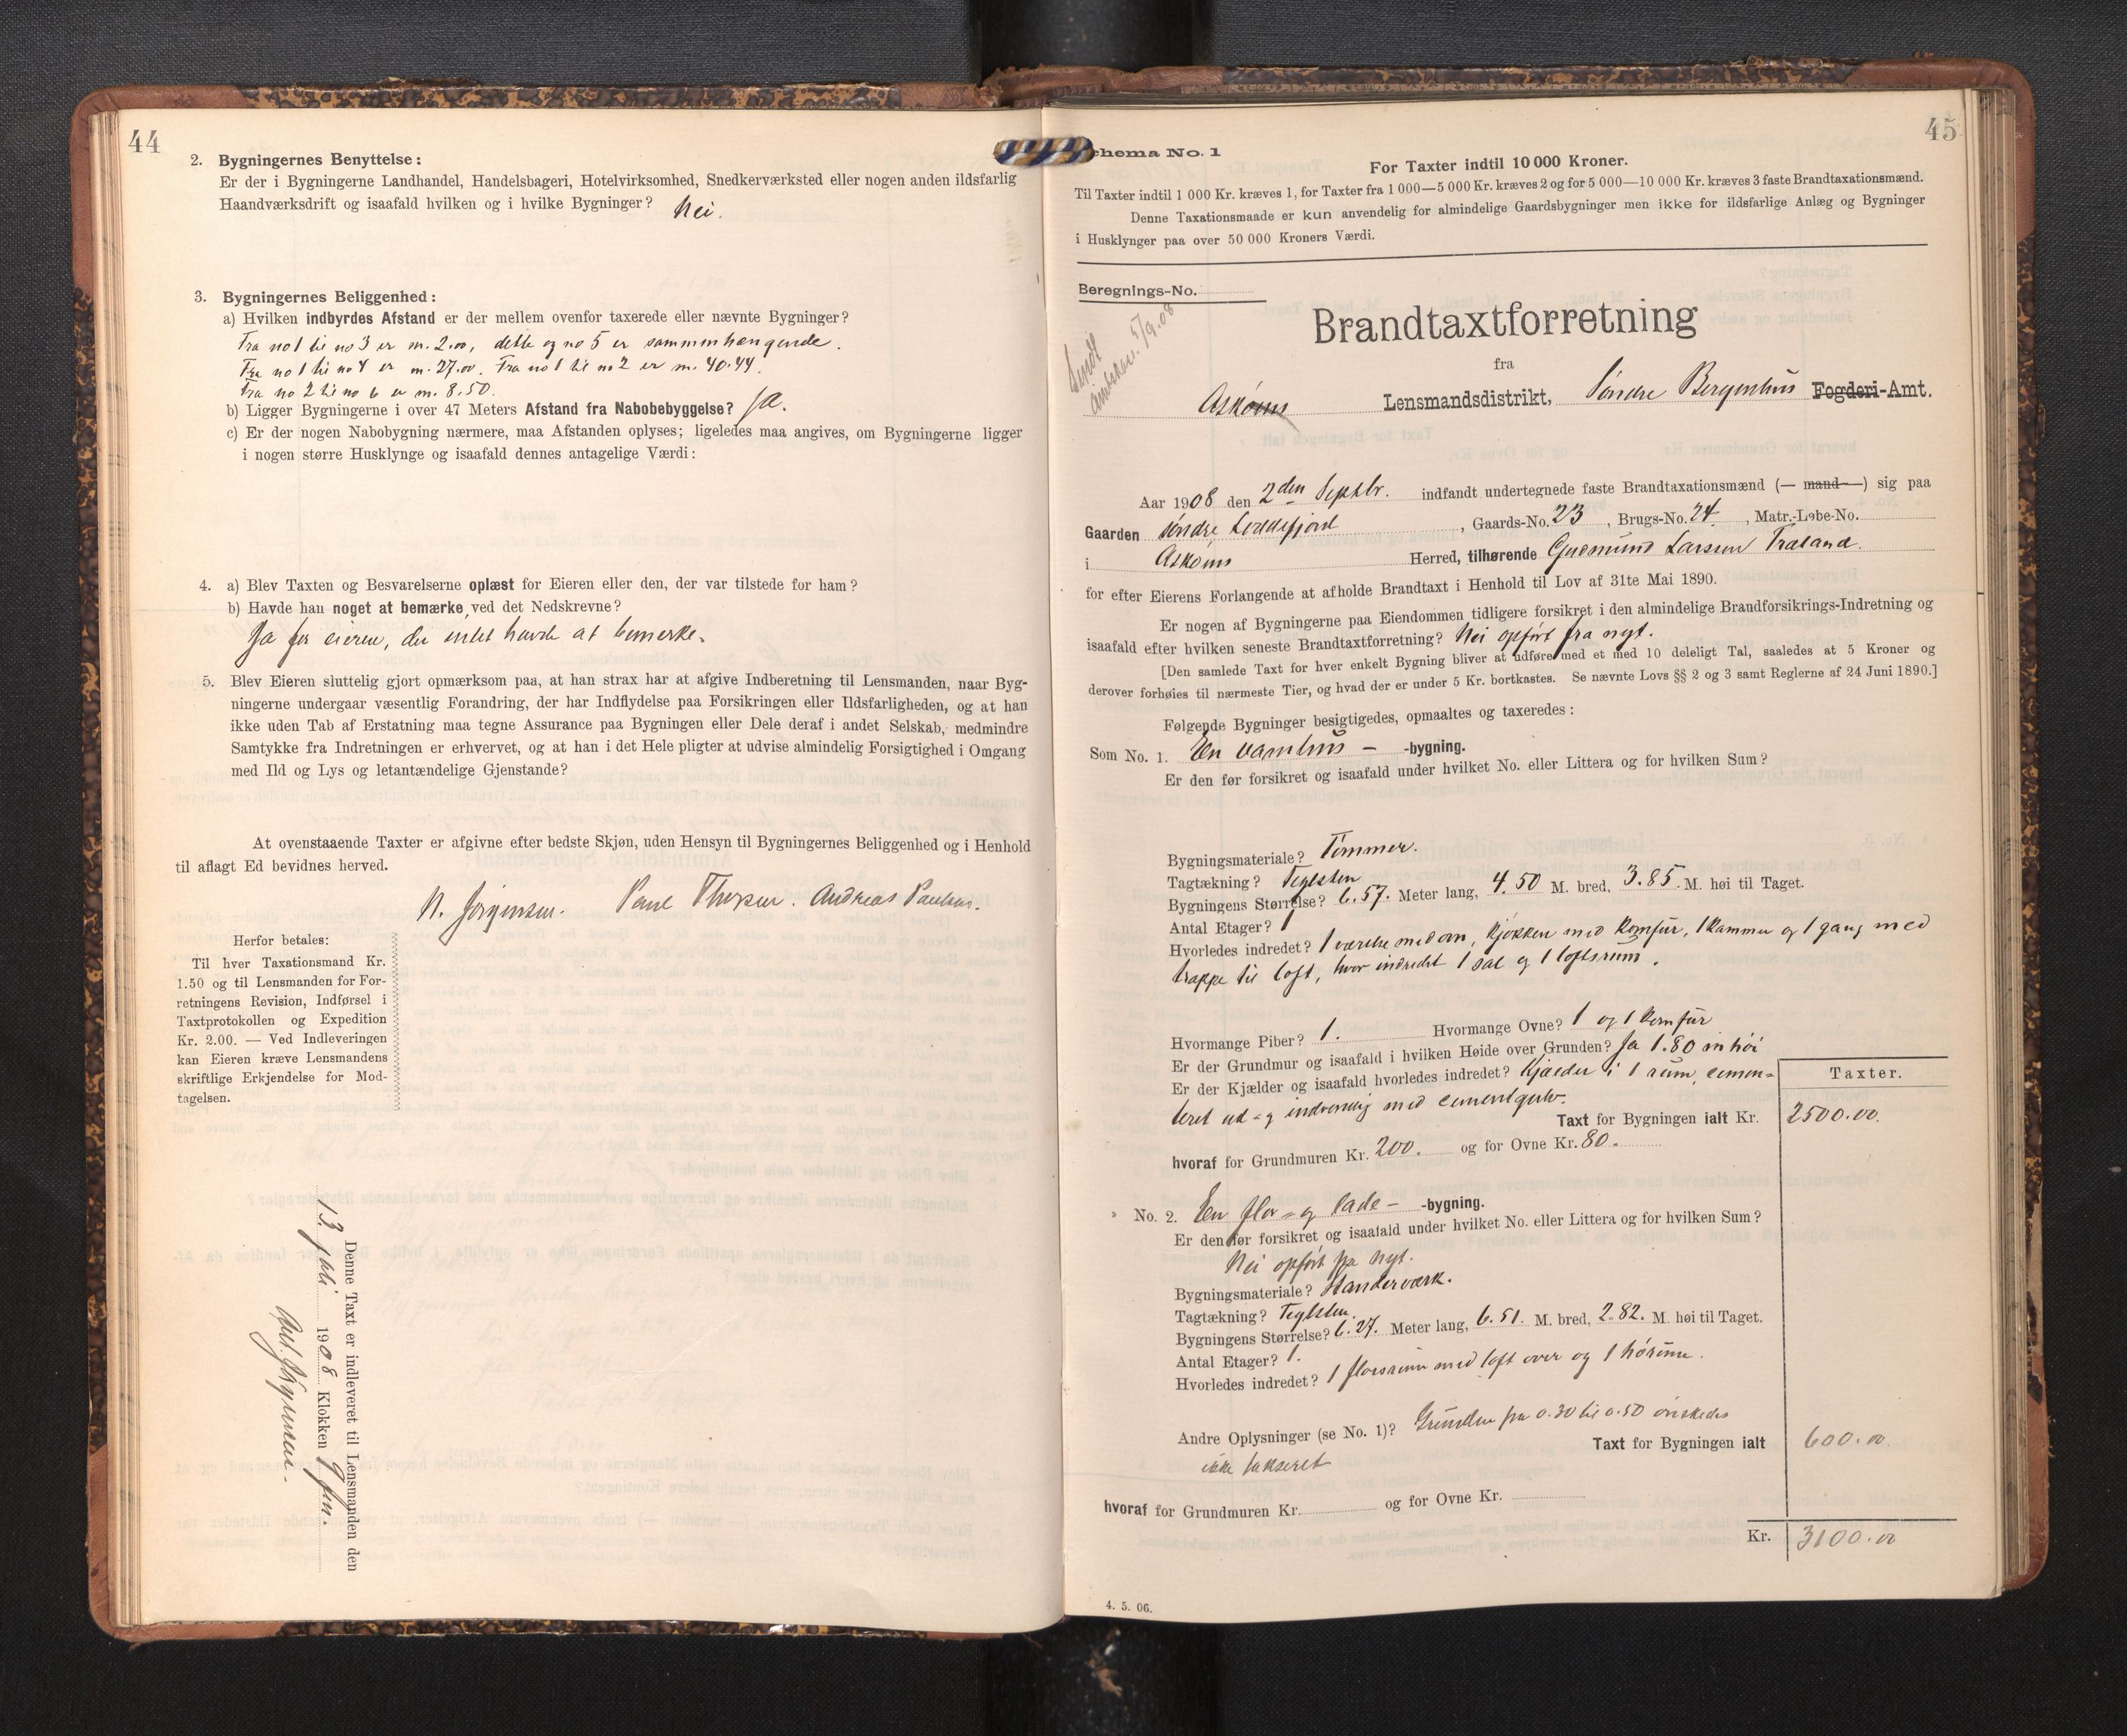 44
2. Bygningernes Benyttelse:
Er der i Bygningerne Landhandel, Handelsbageri, Hotelvirksomhed, Snedkerværksted eller nogen anden ildsfarlig
Haandværksdrift og isaafald hvilken og i hvilke Bygninger? Nei.
3. Bygningernes Beliggenhed:
a) Hvilken indbyrdes Afstand er der mellem ovenfor taxerede eller nævnte Bygninger?
Fra no 1 til no 3 er m. 2.00, dette og no 5 er sammenhængende.
Fra no 1 til no 4 er m. 27.00. Fra no 1 til no 2 er m. 40.44.
Fra no 2 til no 6 er m. 8.50.
b) Ligger Bygningerne i over 47 Meters Afstand fra Nabobebyggelse? Ja.
c) Er der nogen Nabobygning nærmere, maa Afstanden oplyses; ligeledes maa angives, om Bygningerne ligger
i nogen større Husklynge og isaafald dennes antagelige Værdi:
4. a) Blev Taxten og Besvarelserne oplæst for Eieren eller den, der var tilstede for ham?
b) Havde han noget at bemærke ved det Nedskrevne?
Ja for eieren, der intet havde at bemerke.
5. Blev Eieren sluttelig gjort opmærksom paa, at han strax har at afgive Indberetning til Lensmanden, naar Byg-
ningerne undergaar væsentlig Forandring, der har Indflydelse paa Forsikringen eller Ildsfarligheden, og at han
ikke uden Tab af Erstatning maa tegne Assurance paa Bygningen eller Dele deraf i andet Selskab, medmindre
Samtykke fra Indretningen er erhvervet, og at han i det Hele pligter at udvise almindelig Forsigtighed i Omgang
med Ild og Lys og letantændelige Gjenstande?
At ovenstaaende Taxter er afgivne efter bedste Skjøn, uden Hensyn til Bygningernes Beliggenhed og i Henhold
til aflagt Ed bevidnes herved.
N. Jørgensen. Paul Thorsen. Andreas Paulsen.
Herfor betales:
Til hver Taxationsmand Kr.
1.50 og til Lensmanden for For-
retningens Revision, Indførsel i
Taxtprotokollen og Expedition
Kr. 2.00. — Ved Indleveringen
kan Eieren kræve Lensmandens
skriftlige Erkjendelse for Mod-
tagelsen.
Denne Taxt er indleveret til Lensmanden den
13. juli 1908 Klokken 9 fm.
Jørgensen.
45
chema No. 1
For Taxter indtil 10 000 Kroner.
Til Taxter indtil 1 000 Kr. kræves 1, for Taxter fra 1 000—5 000 Kr. kræves 2 og for 5 000—10 000 Kr. kræves 3 faste Brandtaxationsmænd.
Denne Taxationsmaade er kun anvendelig for almindelige Gaardsbygninger men ikke for ildsfarlige Anlæg og Bygninger
i Husklynger paa over 50 000 Kroners Værdi.
Beregnings-No.
Sendt
5/9.08
Brandtaxtforretning
fra
Askøens Lensmandsdistrikt, Søndre Bergenhus Fogderi-Amt.
Aar 1908 den 2den Septbr. indfandt undertegnede faste Brandtaxationsmænd (— mand —) sig paa
Gaarden søndre Loddefjord, Gaards-No. 23, Brugs-No. 24, Matr.-Løbe-No.
i Askøens Herred, tilhørende Gudmund Larsen Træland.
for efter Eierens Forlangende at afholde Brandtaxt i Henhold til Lov af 31te Mai 1890.
Er nogen af Bygningerne paa Eiendommen tidligere forsikret i den almindelige Brandforsikrings-Indretning og
isaafald efter hvilken seneste Brandtaxtforretning? Nei opført fra nyt.
[Den samlede Taxt for hver enkelt Bygning bliver at udføre med et med 10 deleligt Tal, saaledes at 5 Kroner og
derover forhøies til nærmeste Tier, og hvad der er under 5 Kr. bortkastes. Se nævnte Lovs §§ 2 og 3 samt Reglerne af 24 Juni 1890.]
Følgende Bygninger besigtigedes, opmaaltes og taxeredes:
Som No. 1. En vaanhus — -bygning.
Er den før forsikret og isaafald under hvilket No. eller Littera og for hvilken Sum?
Bygningsmateriale? Tømmer.
Tagtækning? Teglsten
Bygningens Størrelse? 6.57. Meter lang, 4.50 M. bred, 3.85. M. høi til Taget.
Antal Etager? 1
Hvorledes indredet? 1 værelse med ovn, kjøkken med komfur, 1 kammer og 1 gang med
trappe til loft, hvor indredet 1 sal og 1 loftsrum.
Hvormange Piber? 1. Hvormange Ovne? 1 og 1 komfur
Er der Grundmur og isaafald i hvilken Høide over Grunden? Ja 1.80 m høi
Er der Kjælder og isaafald hvorledes indredet? Kjælder i 1 rum, cemen-
teret ud- og indvendig med cementgulv.
Taxter.
Taxt for Bygningen ialt Kr. 2500.00.
hvoraf for Grundmuren Kr. 200. og for Ovne Kr. 80.
» No. 2. En flor- og lade — -bygning.
Er den før forsikret og isaafald under hvilket No. eller Littera og for hvilken Sum?
Nei opført fra nyt.
Bygningsmateriale? Standerværk.
Tagtækning? Teglsten.
Bygningens Størrelse? 6.27. Meter lang, 6.51. M. bred, 2.82. M. høi til Taget.
Antal Etager? 1.
Hvorledes indredet? 1 florsrum med loft over og 1 hørum.
Andre Oplysninger (se No. 1)? Grunden fra 0.30 til 0.50 ønskedes
ikke takseret
Taxt for Bygningen ialt 600.00
hvoraf for Grundmuren Kr. og for Ovne Kr.
Kr. 3100.00
4. 5. 06.